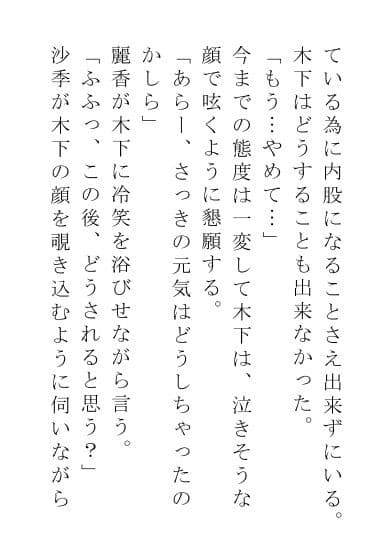 ている為に内股になることさえ出来ずにいる。
木下はどうすることも出来なかった。
「もう…やめて…」
今までの態度は一変して木下は、泣きそうな
顔で呟くように懇願する。
「あらー、さっきの元気はどうしちゃったの
かしら」
麗香が木下に冷笑を浴びせながら言う。
「ふふっ、この後、どうされると思う？」
沙季が木下の顔を覗き込むように伺いながら